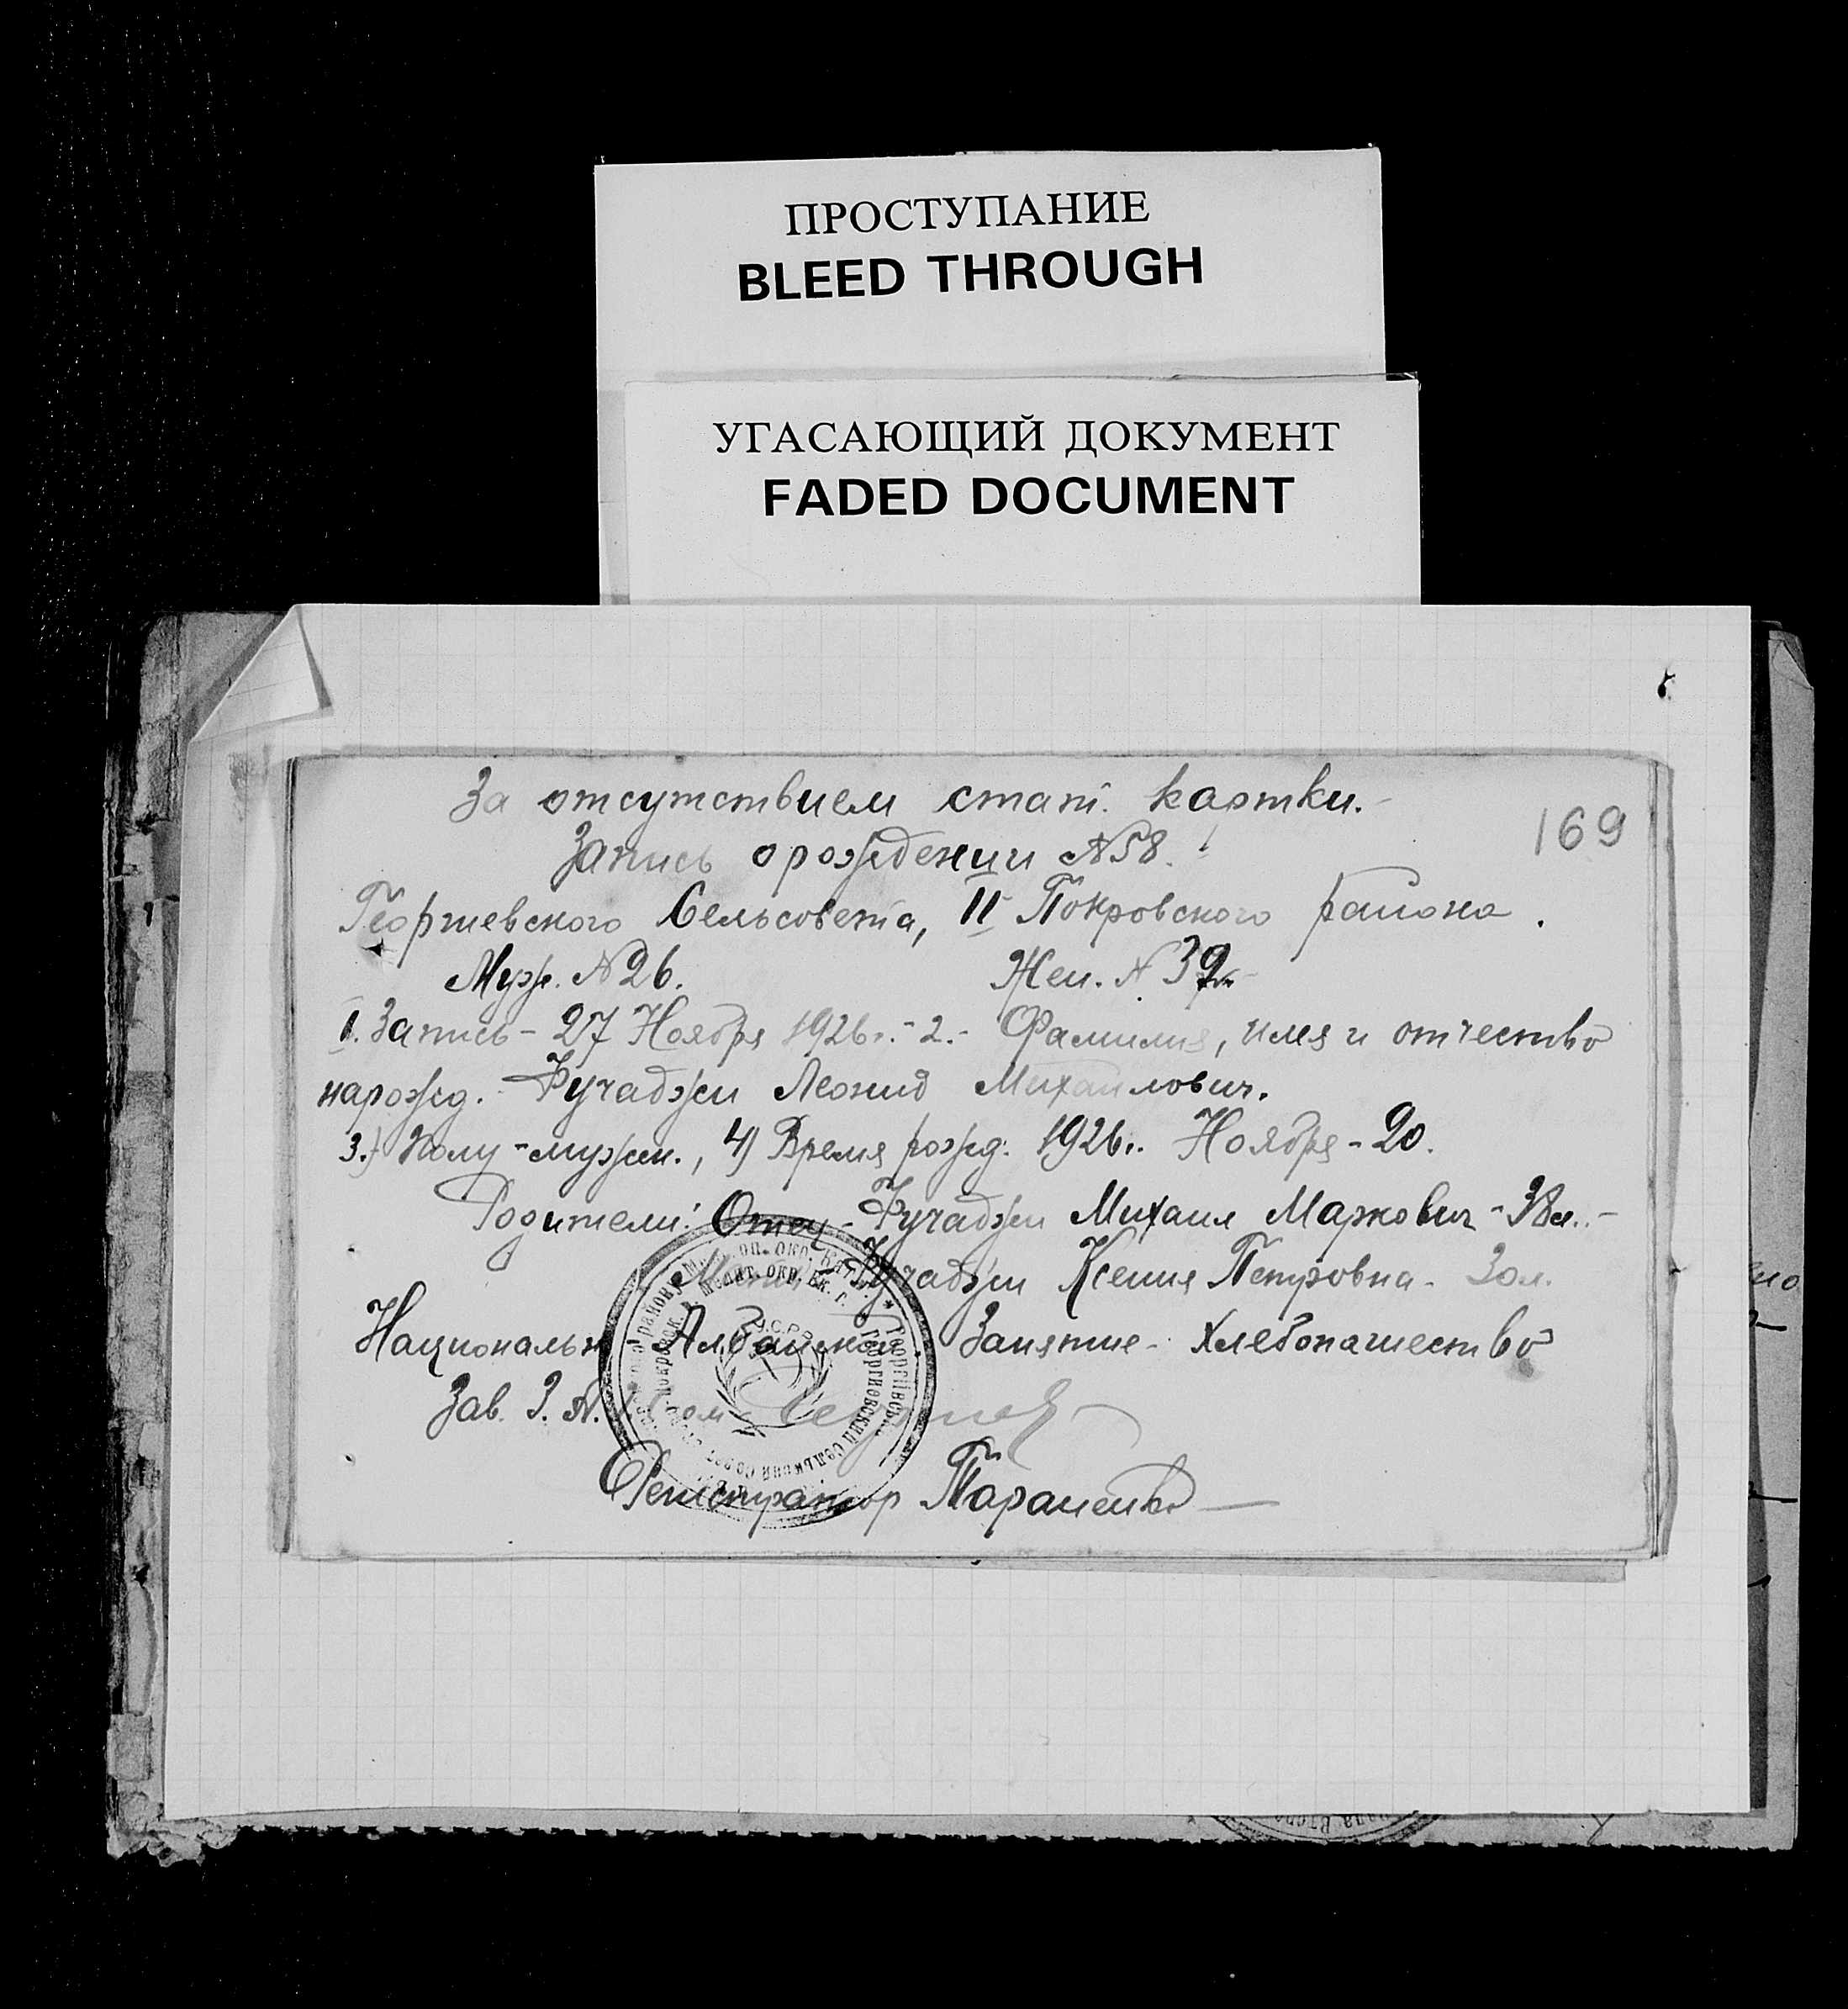 ПРОСТУПАНИЕ
BLEED THROUGH
УГАСАЮЩИЙ ДОКУМЕНТ
FADED DOCUMENT
За отсутствием стат. картки.-
169
Запись о рождении №58.
Георгиевского Сельсовета, II Покровского района.
Муж. №26. Жен. №
1. Запись - 27 Ноября 1926г. - 2.- Фамилия, имя и отчество
нарожд. - Фучаджи Леонид Михаилович.
3.) Полу - мужск., 4) Время рожд: 1926г. Ноября - 20.
Родители: Отец - Фучаджи Михаил Маркович - 38л. -
Мать Фучаджи Ксения Петровна - 30л.
Национальн Албанской Занятие - Хлебопашество
Зав. З.
Регистратор Параненко
Георгиевский